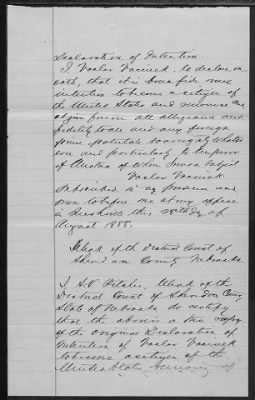 Declaration of Intention
I Vaclav Vavricek, do declare on
oath, that it is bona fide my
intention to become a citizen of
the United States and renounce
forever all allegiance and
fidelity to all and any foreign
prince potentate sovereignty whatso
ever and particularly to Emperor
of Austria of whom I was a subject
Vaclav Vavricek
Subscribed in my presence and
sworn to before me at my office
in Rushville this 28th day of
August 1888.
Clerk of the District Court of
Sheridan County Nebraska
I, clerk of the
District Court of Sheridan County
State of Nebraska do certify
that the above is a true copy
of the original Declaration of
Intention of Vaclav Vavricek
to become a citizen of the
United States